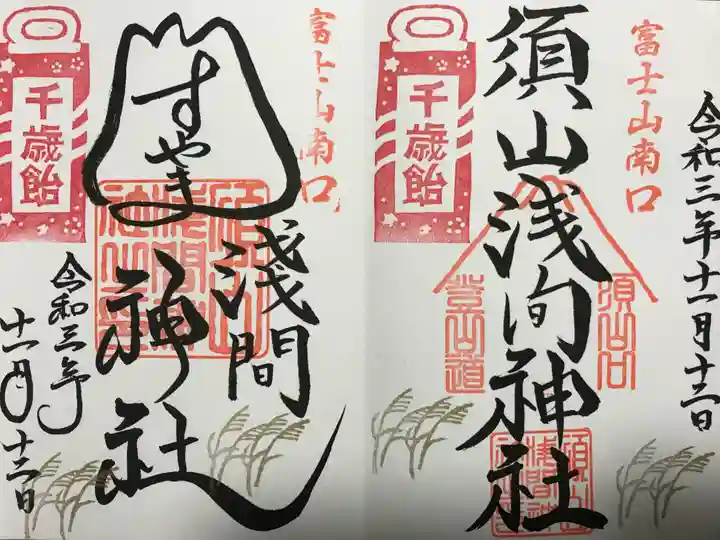 令和三年十一月十二日
富士山南口
須山口
登山道
須山浅間神社
千歳飴
富士山南口
すやま
淺間
神社
千歳飴
令和三年
十一月十二日